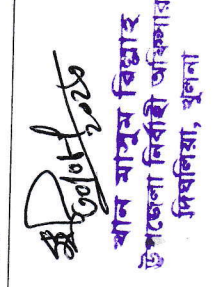 ৩০/০৮/২০২০
খান মাসুম বিল্লাহ
উপজেলা নির্বাহী অফিসার
দিঘলিয়া, খুলনা